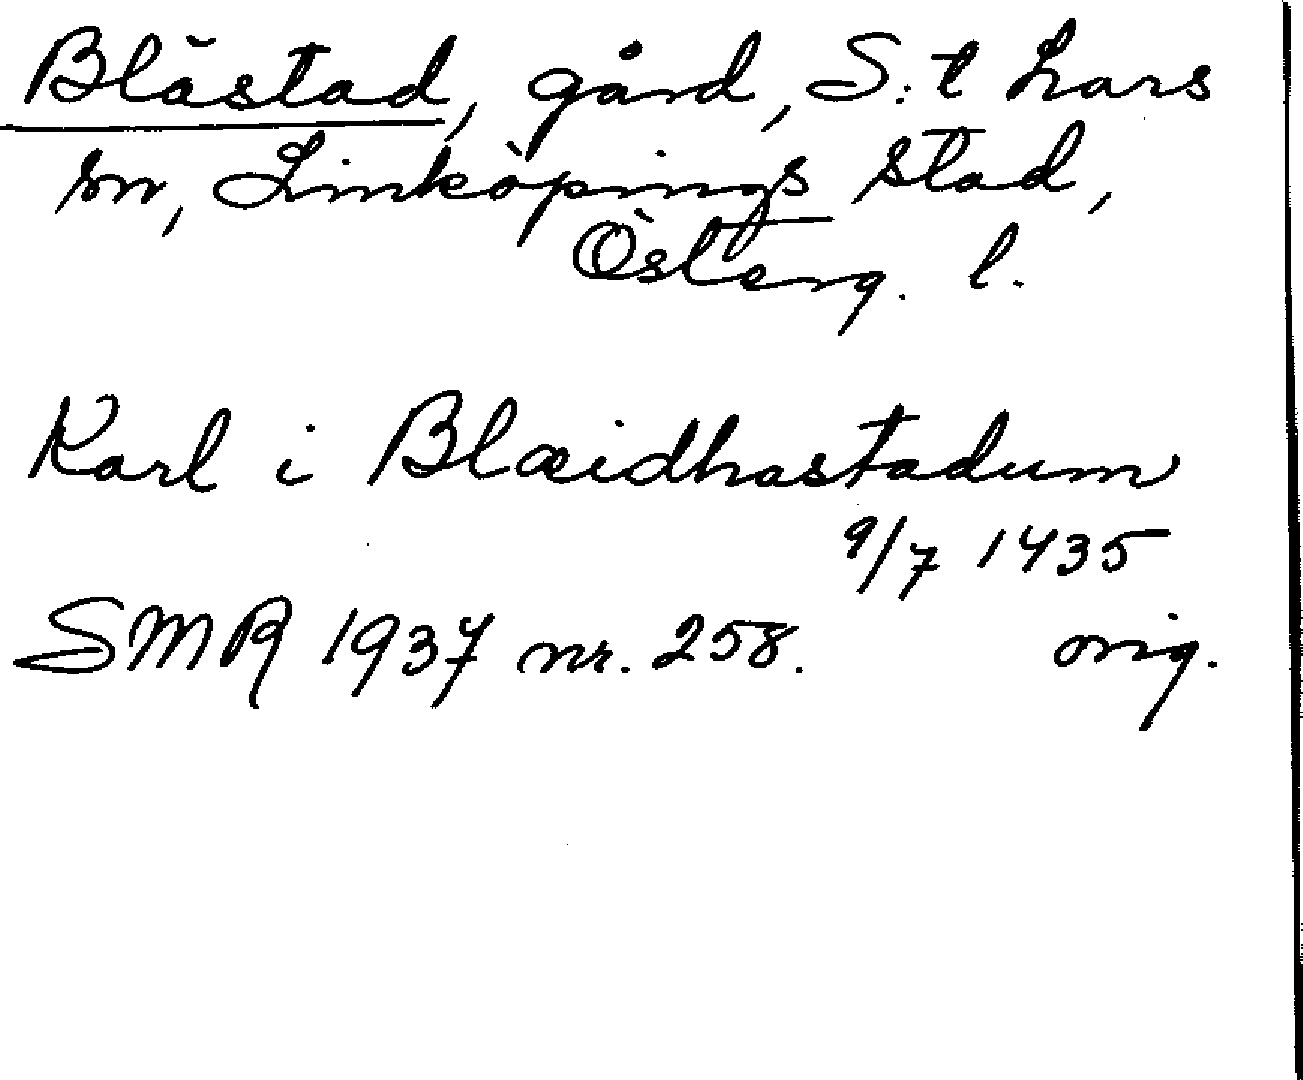 Blästad, gård, S:t Lars
sn, Linköpings stad,
Österg. l.
Karl i Blæidhastadum
9/7 1435
SMR 1937 nr. 258. orig.